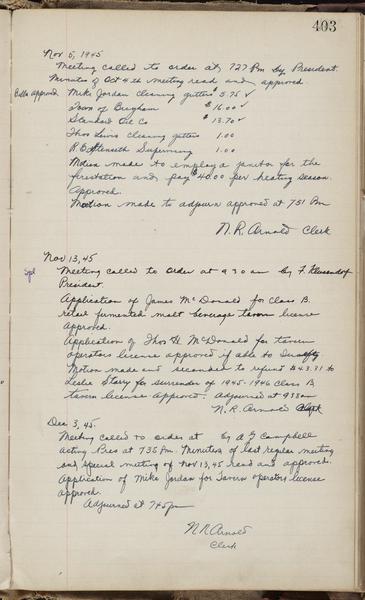 403
Nov 5, 1945
Meeting called to order at 727 Pm by President.
Minutes of Oct 4th meeting read and approved
Bills approved Mike Jordan cleaning gutters $5.75 ✓
Town of Bingham $16.00 ✓
Standard Oil Co $13.70 ✓
Thos Lewis cleaning gutters 1.00
R.E. Supervising 1.00
Motion made to employ a janitor for the
firestation and pay $40.00 per heating season.
Approved.
Motion made to adjourn approved at 751 Pm
N.R. Arnold Clerk
Nov 13, 45
Spl Meeting called to order at 930 am by F.
President.
Application of James McDonald for Class B.
retail fermented malt beverage tavern license
approved.
Application of Thos H. McDonald for tavern
operators license approved if able to qualify
Motion made and seconded to refund $43.31 to
Leslie Starry for surrender of 1945-1946 Class B
tavern license approved. Adjourned at 933am
N.R. Arnold Clerk
Dec 3, 45.
Meeting called to order at by A G Campbell
acting Pres at 735 Pm. Minutes of last regular meeting
and special meeting of Nov 13, 45 read and approved.
Application of Mike Jordan for Tavern operators license
approved.
Adjourned at 745pm
N.R. Arnold
Clerk